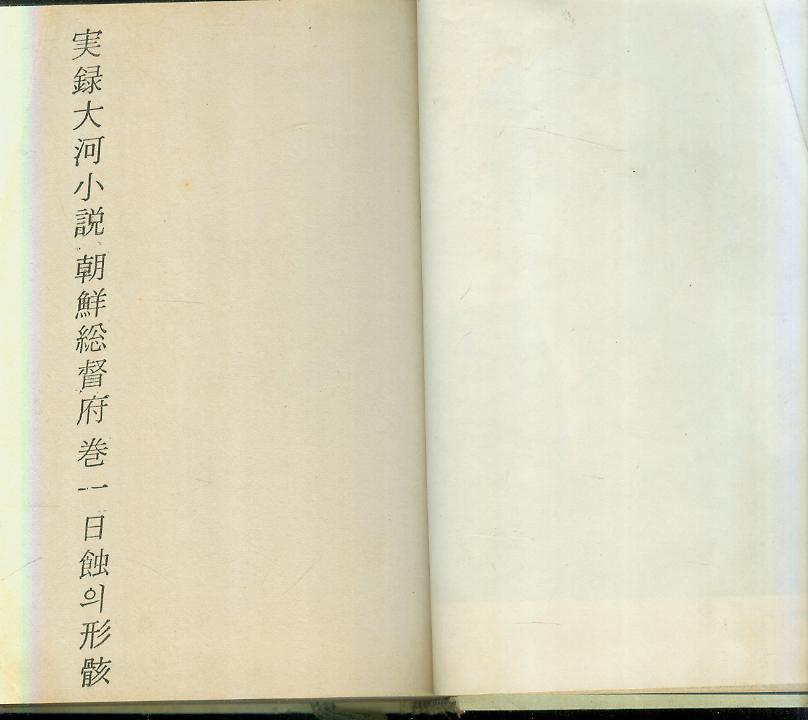 実録大河小説 朝鮮総督府 巻一 日蝕의 形骸